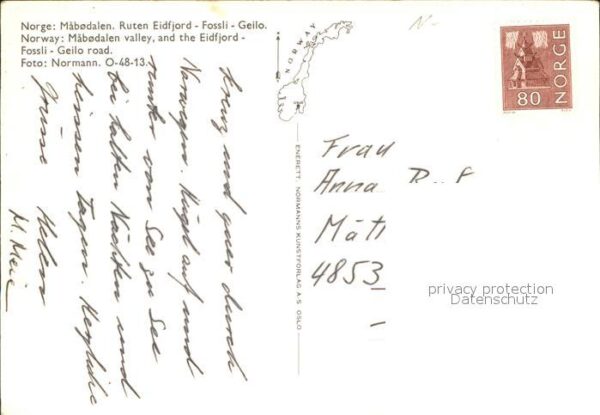 Norge: Måbødalen. Ruten Eidfjord - Fossli - Geilo.
Norway: Måbødalen valley, and the Eidfjord -
Fossli - Geilo road.
Foto: Normann. O-48-13.
kreuz und quer durch
Norwegen. Hügel auf und
runter von See zu See
bei kalten Nächten und
heissen Tagen. Herzliche
Grüsse Helen
M. Meie
NORWAY
ENERETT: NORMANNS KUNSTFORLAG A/S OSLO
N-
NORGE
80
Frau
Anna
Mätt
4853
privacy protection
Datenschutz